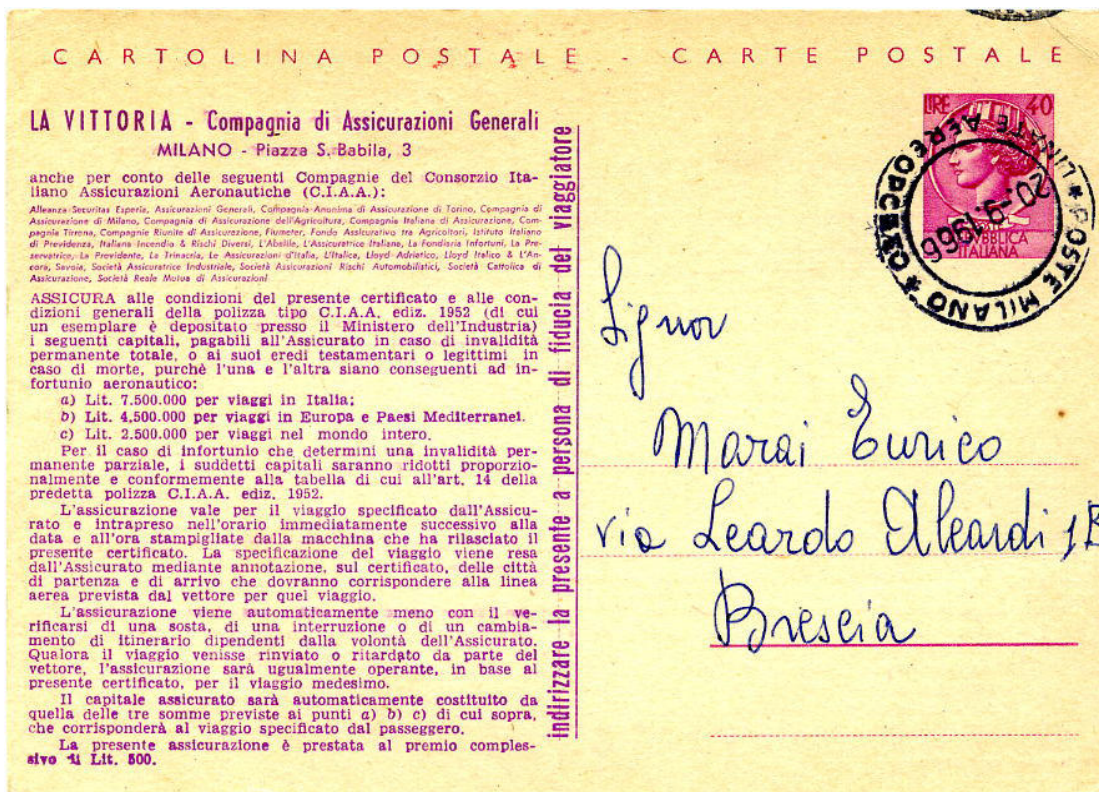 CARTOLINA POSTALE - CARTE POSTALE
LA VITTORIA - Compagnia di Assicurazioni Generali
MILANO - Piazza S. Babila, 3
anche per conto delle seguenti Compagnie del Consorzio Ita-
liano Assicurazioni Aeronautiche (C.I.A.A.):
Alleanza Securitas Esperia, Assicurazioni Generali, Compagnia Anonima di Assicurazione di Torino, Compagnia di
Assicurazione di Milano, Compagnia di Assicurazione dell'Agricoltura, Compagnia Italiana di Assicurazione, Com-
pagnia Tirrena, Compagnie Riunite di Assicurazione, Fiumeter, Fondo Assicurativo tra Agricoltori, Istituto Italiano
di Previdenza, Italiana Incendio & Rischi Diversi, L'Abeille, L'Assicuratrice Italiana, La Fondiaria Infortuni, La Pre-
servatrice, La Previdente, La Trinacria, Le Assicurazioni d'Italia, L'Italica, Lloyd Adriatico, Lloyd Italico & L'An-
cora, Savoia, Società Assicuratrice Industriale, Società Assicurazioni Rischi Automobilistici, Società Cattolica di
Assicurazione, Società Reale Mutua di Assicurazioni
ASSICURA alle condizioni del presente certificato e alle con-
dizioni generali della polizza tipo C.I.A.A. ediz. 1952 (di cui
un esemplare è depositato presso il Ministero dell'Industria)
i seguenti capitali, pagabili all'Assicurato in caso di invalidità
permanente totale, o ai suoi eredi testamentari o legittimi in
caso di morte, purchè l'una e l'altra siano conseguenti ad in-
fortunio aeronautico:
a) Lit. 7.500.000 per viaggi in Italia;
b) Lit. 4.500.000 per viaggi in Europa e Paesi Mediterranei.
c) Lit. 2.500.000 per viaggi nel mondo intero.
Per il caso di infortunio che determini una invalidità per-
manente parziale, i suddetti capitali saranno ridotti proporzio-
nalmente e conformemente alla tabella di cui all'art. 14 della
predetta polizza C.I.A.A. ediz. 1952.
L'assicurazione vale per il viaggio specificato dall'Assicu-
rato e intrapreso nell'orario immediatamente successivo alla
data e all'ora stampigliate dalla macchina che ha rilasciato il
presente certificato. La specificazione del viaggio viene resa
dall'Assicurato mediante annotazione, sul certificato, delle città
di partenza e di arrivo che dovranno corrispondere alla linea
aerea prevista dal vettore per quel viaggio.
L'assicurazione viene automaticamente meno con il ve-
rificarsi di una sosta, di una interruzione o di un cambia-
mento di itinerario dipendenti dalla volontà dell'Assicurato.
Qualora il viaggio venisse rinviato o ritardato da parte del
vettore, l'assicurazione sarà ugualmente operante, in base al
presente certificato, per il viaggio medesimo.
Il capitale assicurato sarà automaticamente costituito da
quella delle tre somme previste ai punti a) b) c) di cui sopra,
che corrisponderà al viaggio specificato dal passeggero.
La presente assicurazione è prestata al premio comples-
sivo di Lit. 500.
indirizzare la presente a persona di fiducia del viaggiatore
LIRE 40
REPUBBLICA
ITALIANA
POSTE MILANO
LINATE AEREOPORTO
20-9-1966
Signor
Marai Enrico
via Leardo Aleardi 1B
Brescia